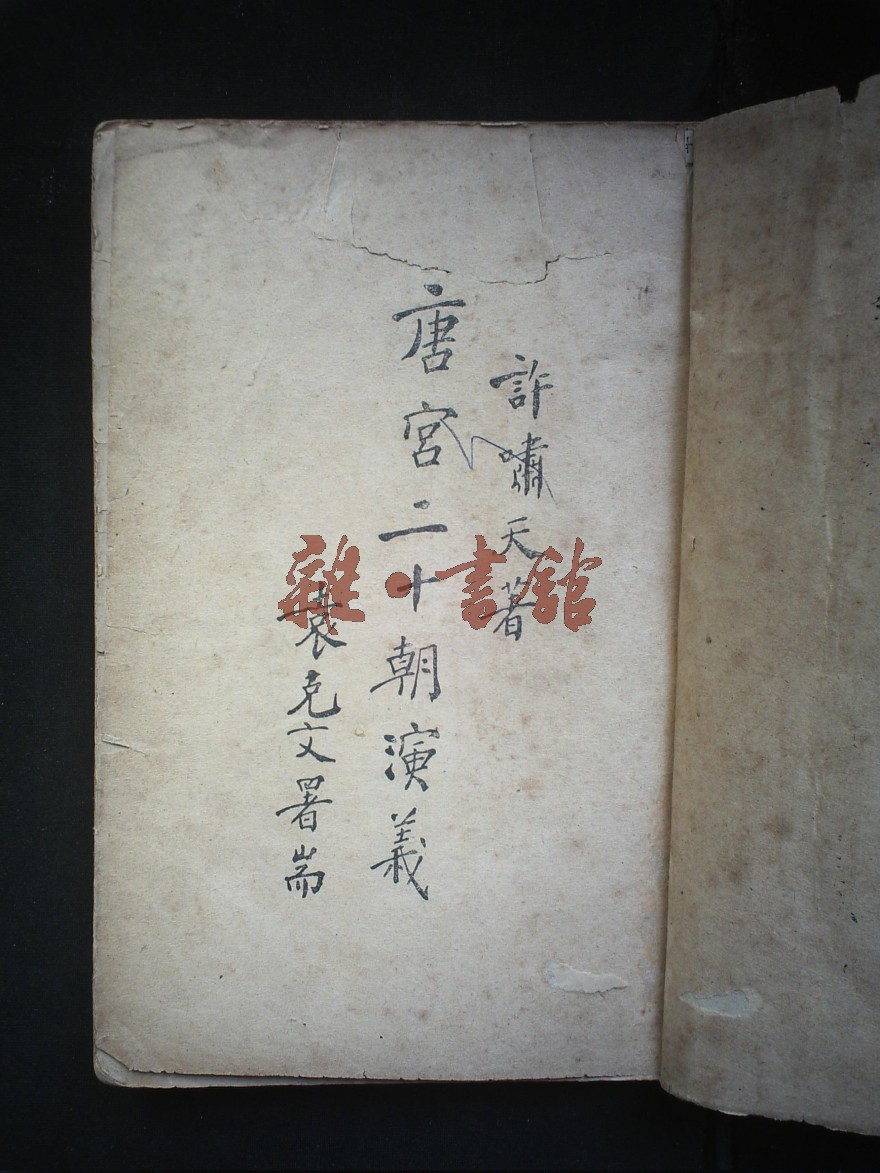 許嘯天著
唐宮二十朝演義
袁克文署耑
雜·書館